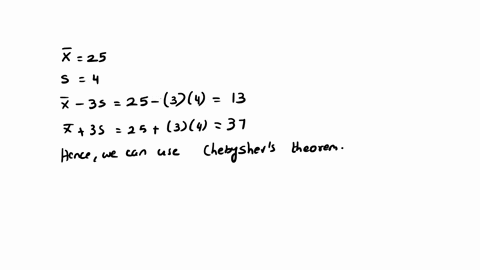 x̄ = 25
s = 4
x̄ - 3s = 25 - (3)(4) = 13
x̄ + 3s = 25 + (3)(4) = 37
Hence, we can use Chebyshev's theorem.